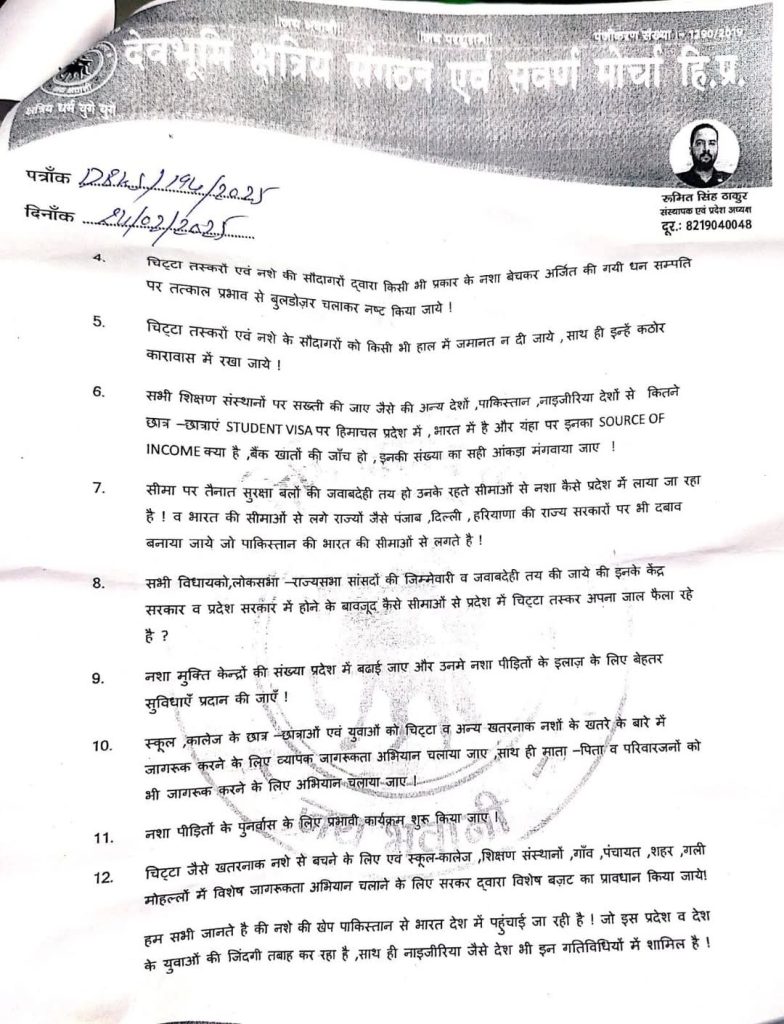 जय भवानी
।जय परशुराम।
पंजीकरण संख्या :- 1290/2019
देवभूमि क्षत्रिय संगठन एवं सवर्ण मोर्चा हि.प्र.
जय भवानी
क्षत्रिय धर्म युगे युगे
रुमित सिंह ठाकुर
संस्थापक एवं प्रदेश अध्यक्ष
दूर.: 8219040048
पत्राँक DBKS/194/2025
दिनाँक 24/02/2025
4. चिट्टा तस्करों एवं नशे की सौदागरों द्वारा किसी भी प्रकार के नशा बेचकर अर्जित की गयी धन सम्पति
पर तत्काल प्रभाव से बुलडोज़र चलाकर नष्ट किया जाये !
5. चिट्टा तस्करों एवं नशे के सौदागरों को किसी भी हाल में जमानत न दी जाये ,साथ ही इन्हें कठोर
कारावास में रखा जाये !
6. सभी शिक्षण संस्थानों पर सख्ती की जाए जैसे की अन्य देशों ,पाकिस्तान ,नाइजीरिया देशों से कितने
छात्र –छात्राएं STUDENT VISA पर हिमाचल प्रदेश में ,भारत में है और यंहा पर इनका SOURCE OF
INCOME क्या है ,बैंक खातों की जाँच हो , इनकी संख्या का सही आंकड़ा मंगवाया जाए !
7. सीमा पर तैनात सुरक्षा बलों की जवाबदेही तय हो उनके रहते सीमाओं से नशा कैसे प्रदेश में लाया जा रहा
है ! व भारत की सीमाओं से लगे राज्यों जैसे पंजाब ,दिल्ली , हरियाणा की राज्य सरकारों पर भी दबाव
बनाया जाये जो पाकिस्तान की भारत की सीमाओं से लगते है !
8. सभी विधायको,लोकसभा –राज्यसभा सांसदों की जिम्मेवारी व जवाबदेही तय की जाये की इनके केंद्र
सरकार व प्रदेश सरकार में होने के बावजूद कैसे सीमाओं से प्रदेश में चिट्टा तस्कर अपना जाल फैला रहे
है ?
9. नशा मुक्ति केन्द्रों की संख्या प्रदेश में बढाई जाए और उनमे नशा पीड़ितों के इलाज़ के लिए बेहतर
सुविधाएँ प्रदान की जाएँ !
10. स्कूल ,कालेज के छात्र –छात्राओं एवं युवाओं को चिट्टा व अन्य खतरनाक नशों के खतरे के बारे में
जागरूक करने के लिए व्यापक जागरूकता अभियान चलाया जाए ,साथ ही माता –पिता व परिवारजनों को
भी जागरूक करने के लिए अभियान चलाया जाए !
11. नशा पीड़ितों के पुनर्वास के लिए प्रभावी कार्यक्रम शुरू किया जाए !
जय भवानी
12. चिट्टा जैसे खतरनाक नशे से बचने के लिए एवं स्कूल-कालेज ,शिक्षण संस्थानों ,गाँव ,पंचायत ,शहर ,गली
मोहल्लों में विशेष जागरूकता अभियान चलाने के लिए सरकर द्वारा विशेष बज़ट का प्रावधान किया जाये!
हम सभी जानते है की नशे की खेप पाकिस्तान से भारत देश में पहुंचाई जा रही है ! जो इस प्रदेश व देश
के युवाओं की जिंदगी तबाह कर रहा है ,साथ ही नाइजीरिया जैसे देश भी इन गतिविधियों में शामिल है !